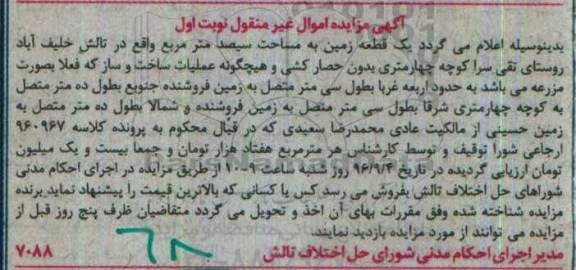 آگهی مزایده اموال غیر منقول نوبت اول
بدینوسیله اعلام می گردد یک قطعه زمین به مساحت سیصد متر مربع واقع در تالش خلیف آباد
روستای تقی سرا کوچه چهارمتری بدون حصار کشی و هیچگونه عملیات ساخت و ساز که فعلا بصورت
مزرعه می باشد به حدود اربعه غربا بطول سی متر متصل به زمین فروشنده جنوبع بطول ده متر متصل
به کوچه چهارمتری شرقا بطول سی متر متصل به زمین فروشنده و شمالا بطول ده متر متصل به
زمین حسینی از مالکیت عادی محمدرضا سعیدی که در قبال محکوم به پرونده کلاسه ۹۶۰۹۶۷
ارجاعی شورا توقیف و توسط کارشناس هر مترمربع هفتاد هزار تومان و جمعا بیست و یک میلیون
تومان ارزیابی گردیده در تاریخ ۹۶/۹/۴ روز شنبه ساعت ۹-۱۰ از طریق مزایده در اجرای احکام مدنی
شوراهای حل اختلاف تالش بفروش می رسد کس یا کسانی که بالاترین قیمت را پیشنهاد نماید برنده
مزایده شناخته شده وفق مقررات بهای آن اخذ و تحویل می گردد متقاضیان ظرف پنج روز قبل از
مزایده می توانند از مورد مزایده بازدید نمایند.
مدیر اجرای احکام مدنی شورای حل اختلاف تالش
۷۰۸۸
۶۸